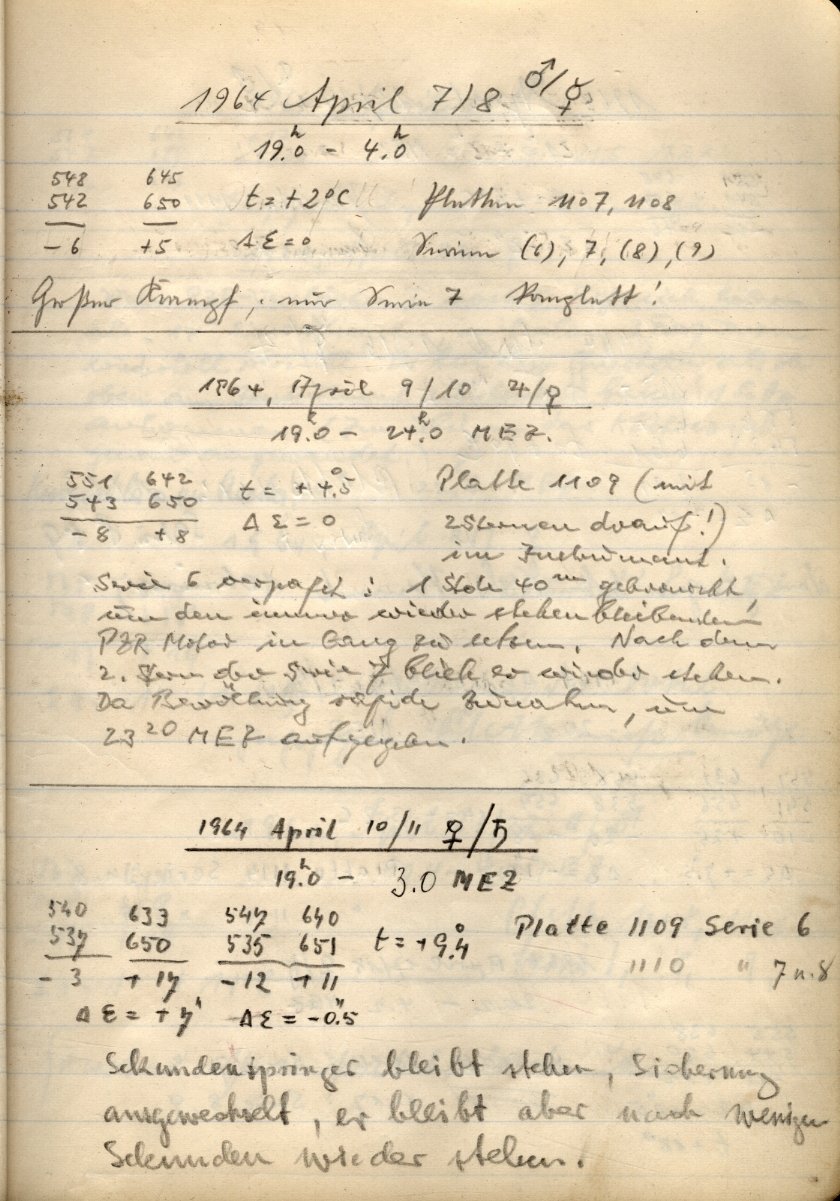 1964 April 7/8 ♂/☿
19.0ʰ – 4.0ʰ
548 645
542 650 t = +2°C Platten 1107, 1108
– 6 +5 Δ Σ = 0 Serien (6), 7, (8), (9)
Großer Krampf, nur Serie 7 komplett!
1964, April 9/10 ♃/♀
19.0ʰ – 24.0ʰ MEZ.
551 642 t = +4.°5 Platte 1109 (mit
543 650 Δ Σ = 0 2 Sternen drauf!)
– 8 + 8 im Instrument.
Serie 6 verpaßt: 1 Stde 40ᵐ gebraucht,
um den immer wieder stehen bleibenden
PZR Motor in Gang zu setzen. Nach dem
2. Stern der Serie 7 blieb er wieder stehen.
Da Bewölkung rapide zunahm, um
23²⁰ MEZ aufgegeben.
1964 April 10/11 ♀/♄
19.0ʰ – 3.0 MEZ
540 633 547 640 Platte 1109 Serie 6
537 650 535 651 t = +9.°4
– 3 + 17 – 12 + 11 1110 " 7 u. 8
Δ Σ = + 7" Δ Σ = – 0."5
Sekundenspringer bleibt stehen, Sicherung
ausgewechselt, er bleibt aber nach wenigen
Sekunden wieder stehen.